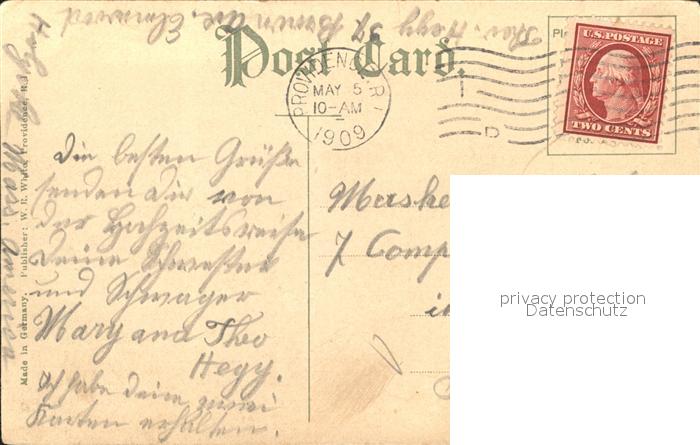 Theo. Hegy 37 Brown Ave, Elmwood
Post Card.
PROVIDENCE, R.I.
MAY 5
10-AM
1909
D
U.S. POSTAGE
TWO CENTS
Pl
Die besten Grüße
senden Dir von
der Hochzeitsreise
Deine Schwester
und Schwager
Mary and Theo
Hegy.
Ich habe deine zwei
Karten erhalten.
7 Comp
privacy protection
Datenschutz
Made in Germany. Publisher: W. R. White, Providence, R.I.